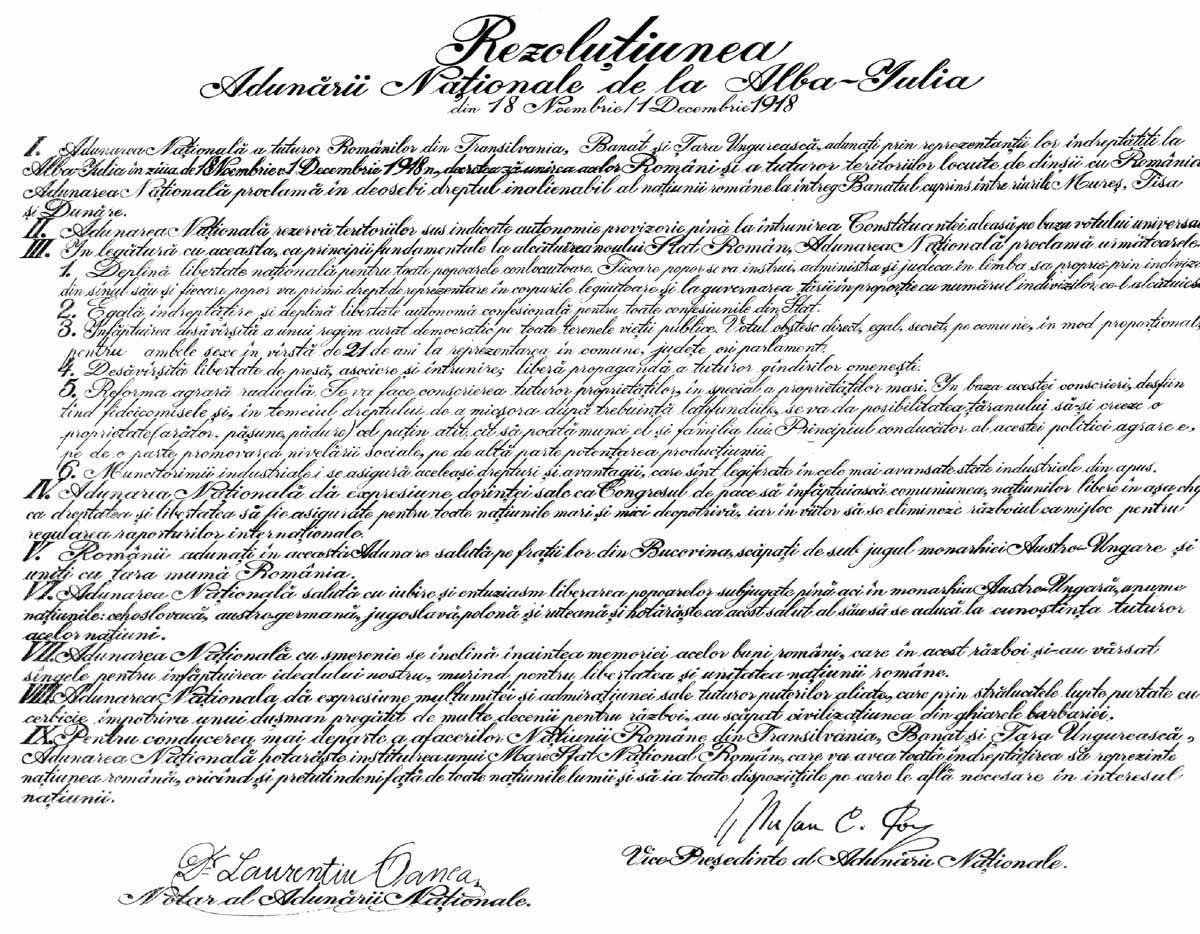 Rezoluțiunea
Adunării Naționale de la Alba-Iulia
din 18 Noembrie/1 Decembrie 1918
I. Adunarea Națională a tuturor Românilor din Transilvania, Banat și Țara Ungurească, adunați prin reprezentanții lor îndreptățiți la
Alba-Iulia în ziua de 18 Noembrie 1 Decembrie 1918, decretează unirea acelor Români și a tuturor teritoriilor locuite de dînșii cu România
Adunarea Națională proclamă în deosebi dreptul inalienabil al națiunii române la întreg Banatul cuprins între rîurile Mureș, Tisa
și Dunăre.
II. Adunarea Națională rezervă teritoriilor sus indicate autonomie provizorie pînă la întrunirea Constituantei aleasă pe baza votului universa
III. In legătură cu aceasta, ca principii fundamentale la alcătuirea noului Stat Român, Adunarea Națională proclamă următoarele
1. Deplină libertate națională pentru toate popoarele conlocuitoare. Fiecare popor se va instrui, administra și judeca în limba sa proprie prin indiviz
din sînul său și fiecare popor va primi drept de reprezentare în corpurile legiuitoare și la guvernarea țării în proporție cu numărul indivizilor ce-l alcătuiesc
2. Egală îndreptățire și deplină libertate autonomă confesională pentru toate confesiunile din Stat.
3. Înfăptuirea desăvîrșită a unui regim curat democratic pe toate terenele vieții publice. Votul obștesc direct, egal, secret, pe comune, în mod proporțional
pentru ambele sexe în vîrstă de 21 de ani la reprezentarea în comune, județe ori parlament.
4. Desăvîrșită libertate de presă, asociere și întrunire; liberă propagandă a tuturor gîndirilor omenești.
5. Reforma agrară radicală. Se va face conscrierea tuturor proprietăților, în special a proprietăților mari. În baza acestei conscrieri, desfiin
țînd fideicomisele și, în temeiul dreptului de a micșora după trebuință latifundiile, se va da posibilitatea țăranului să-și creeze o
proprietate (arător, pășune, pădure) cel puțin atît cît să poată munci el și familia lui. Principiul conducător al acestei politici agrare e,
pe de o parte promovarea nivelării sociale, pe de altă parte potențarea producțiunii
6. Muncitorimii industriale i se asigură aceleași drepturi și avantagii, care sînt legiferate în cele mai avansate state industriale din apus.
IV. Adunarea Națională dă expresiune dorinței sale ca Congresul de pace să înfăptuiască comuniunea națiunilor libere în așa chip
ca dreptatea și libertatea să fie asigurate pentru toate națiunile mari și mici deopotrivă, iar în viitor să se elimineze războiul ca mijloc pentru
regularea raporturilor internaționale.
V. Românii adunați în această Adunare salută pe frații lor din Bucovina, scăpați de sub jugul monarhiei Austro-Ungare și
uniți cu țara mumă România.
VI. Adunarea Națională salută cu iubire și entuziasm liberarea popoarelor subjugate pînă aci în monarhia Austro-Ungară, anume
națiunile: cehoslovacă, austro-germană, jugoslavă, polonă și ruteană și hotărăște ca acest salut al său să se aducă la cunoștința tuturor
acelor națiuni.
VII. Adunarea Națională cu smerenie se închină înaintea memoriei acelor buni români, care în acest război și-au vărsat
sîngele pentru înfăptuirea idealului nostru, murind pentru libertatea și unitatea națiunii române.
VIII. Adunarea Nationala dă expresiune mulțumitei și admirațiunei sale tuturor puterilor aliate, care prin strălucitele lupte purtate cu
cerbicie împotriva unui dușman pregătit de multe decenii pentru război, au scăpat civilizațiunea din ghiarele barbariei.
IX. Pentru conducerea mai departe a afacerilor Națiunii Române din Transilvania, Banat și Țara Ungurească,
Adunarea Națională hotărăște instituirea unui Mare Sfat Național Român, care va avea toată îndreptățirea să reprezinte
națiunea română, oricînd și pretutindeni față de toate națiunile lumii și să ia toate dispozițiile pe care le află necesare în interesul
națiunii.
Vice Președinte al Adunării Naționale.
Dr. Laurențiu Oanea
Notar al Adunării Naționale.